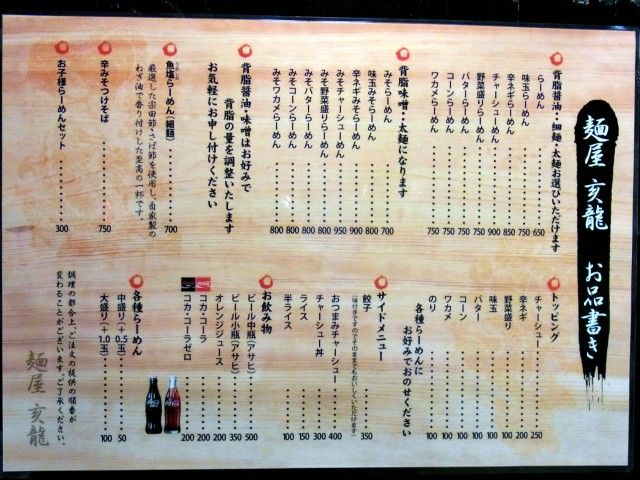 麺屋 亥龍 お品書き
背脂醤油・・細麺・太麺お選びいただけます
らーめん 650
味玉らーめん 750
辛ネギらーめん 850
チャーシューめん 900
野菜盛りらーめん 750
バターらーめん 750
コーンらーめん 750
ワカメらーめん 750
背脂味噌・・太麺になります
みそらーめん 700
味玉みそらーめん 800
辛ネギみそらーめん 900
みそチャーシューめん 950
みそ野菜盛りらーめん 800
みそバターらーめん 800
みそコーンらーめん 800
みそワカメらーめん 800
背脂醤油・味噌はお好みで
背脂の量を調整いたします
お気軽にお申し付けください
魚塩らーめん(細麺) 700
厳選した宗田節・さば節を使用し、自家製の
ねぎ油で香り付けした至高の一杯です。
辛みそつけそば 750
お子様らーめんセット 300
トッピング
チャーシュー 250
辛ネギ 200
野菜盛り 100
味玉 100
バター 100
コーン 100
ワカメ 100
のり 100
各種らーめんに
お好みでおのせください
サイドメニュー
餃子 350
(味付きですのでそのままでもおいしくいただけます)
おつまみチャーシュー 400
チャーシュー丼 300
ライス 150
半ライス 100
お飲み物
ビール中瓶(アサヒ) 500
ビール小瓶(アサヒ) 350
オレンジジュース 200
コカ・コーラ 200
コカ・コーラゼロ 200
各種らーめん
中盛り(+0.5玉) 50
大盛り(+1.0玉) 100
調理の都合上、ご注文の提供の順番が
変わることがございます。ご了承ください。
麺屋 亥龍